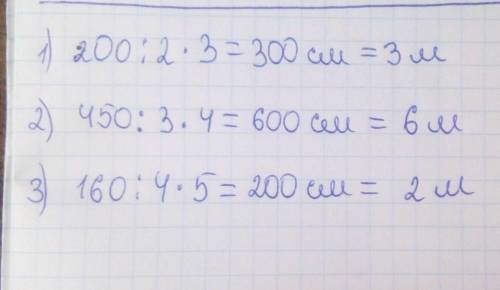 1) 200 : 2 · 3 = 300 см = 3 м
2) 450 : 3 · 4 = 600 см = 6 м
3) 160 : 4 · 5 = 200 см = 2 м